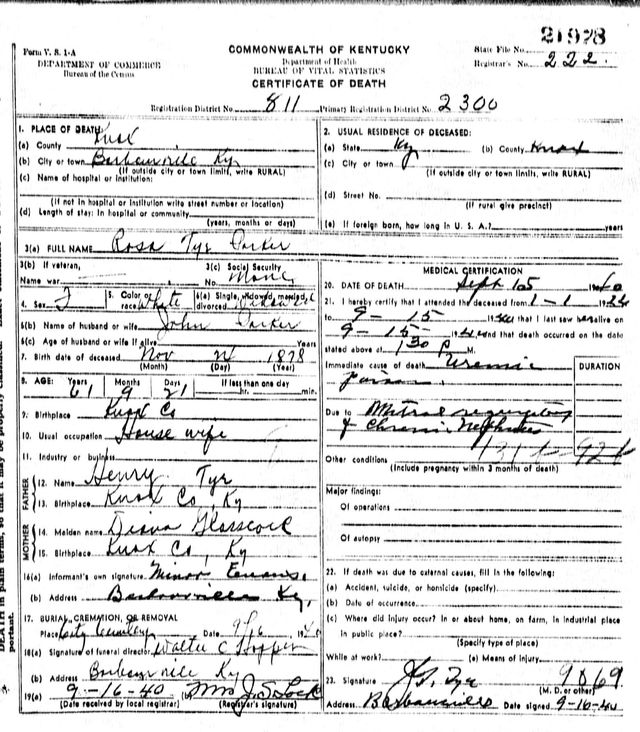 21978
Form V. S. 1-A
COMMONWEALTH OF KENTUCKY
State File No.
DEPARTMENT OF COMMERCE
Department of Health
Registrar's No. 222.
Bureau of the Census
BUREAU OF VITAL STATISTICS
CERTIFICATE OF DEATH
Registration District No. 811 Primary Registration District No. 2300
1. PLACE OF DEATH
(a) County Knox
(b) City or town Barbourville Ky
(If outside city or town limits, write RURAL)
(c) Name of hospital or institution:
(If not in hospital or institution write street number or location)
(d) Length of stay: In hospital or community
(years, months or days)
2. USUAL RESIDENCE OF DECEASED:
(a) State Ky (b) County Knox
(c) City or town
(If outside city or town limits, write RURAL)
(d) Street No.
(If rural give precinct)
(e) If foreign born, how long in U. S. A.? years
3(a) FULL NAME Rosa Tye Parker
3(b) If veteran,
Name war
3(c) Social Security
No. None
4. Sex F
5. Color or race White
6(a) Single, widowed, married, divorced
6(b) Name of husband or wife John Parker
6(c) Age of husband or wife if alive Years
7. Birth date of deceased Nov 1878
(Month) (Day) (Year)
8. AGE: Years Months Days If less than one day
61 9 21 hr. min.
9. Birthplace Knox Co
10. Usual occupation House wife
11. Industry or business
FATHER
12. Name Henry Tye
13. Birthplace Knox Co, Ky
MOTHER
14. Maiden name Diana Glasscock
15. Birthplace Knox Co, Ky
16(a) Informant's own signature Minor Evans
(b) Address Barbourville Ky,
17. BURIAL, CREMATION, OR REMOVAL
Place City Cemetery Date 9/16 1940
18(a) Signature of funeral director Walter C Hopper
(b) Address Barbourville Ky
19(a) 9-16-40 (b) Mrs J. S. Lock
(Date received by local registrar) (Registrar's signature)
MEDICAL CERTIFICATION
20. DATE OF DEATH Sept 15 1940
21. I hereby certify that I attended the deceased from 1-1 19
to 9-15 1940 that I last saw her alive on
9-15 1940 and that death occurred on the date
stated above at 1:30 P M.
Immediate cause of death Uremic
DURATION
Due to Mitral regurgitation
& Chronic Nephritis
Other conditions
(Include pregnancy within 3 months of death)
Major findings:
Of operations
Of autopsy
22. If death was due to external causes, fill in the following:
(a) Accident, suicide, or homicide (specify)
(b) Date of occurrence
(c) Where did injury occur? In or about home, on farm, in industrial place
in public place?
(Specify type of place)
While at work? (e) Means of injury
23. Signature J. S. Tye 9069
(M. D. or other)
Address Barbourville Date signed 9-16-40
DEATH in plain terms, so that it may be properly classified.
portant.